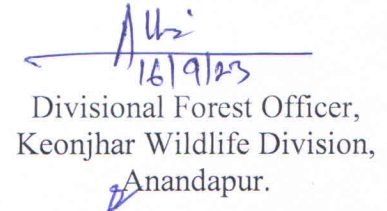 16/9/23
Divisional Forest Officer,
Keonjhar Wildlife Division,
Anandapur.